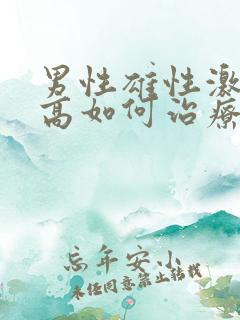 男性雄性激
高如何治療
忘年安小
未经同意禁止转载